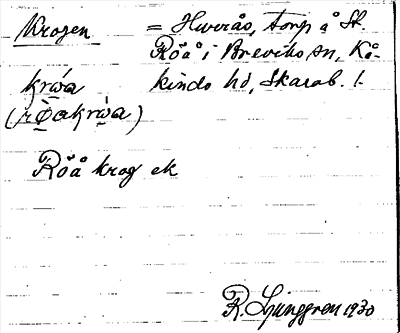 Krogen = Hwirås, torp å St.
Röå i Breviks sn, Kå-
krẃa kinds hd, Skarab. l.
(rØ̀akrẁa)
Röå krog ek
R. Ljunggren 1930